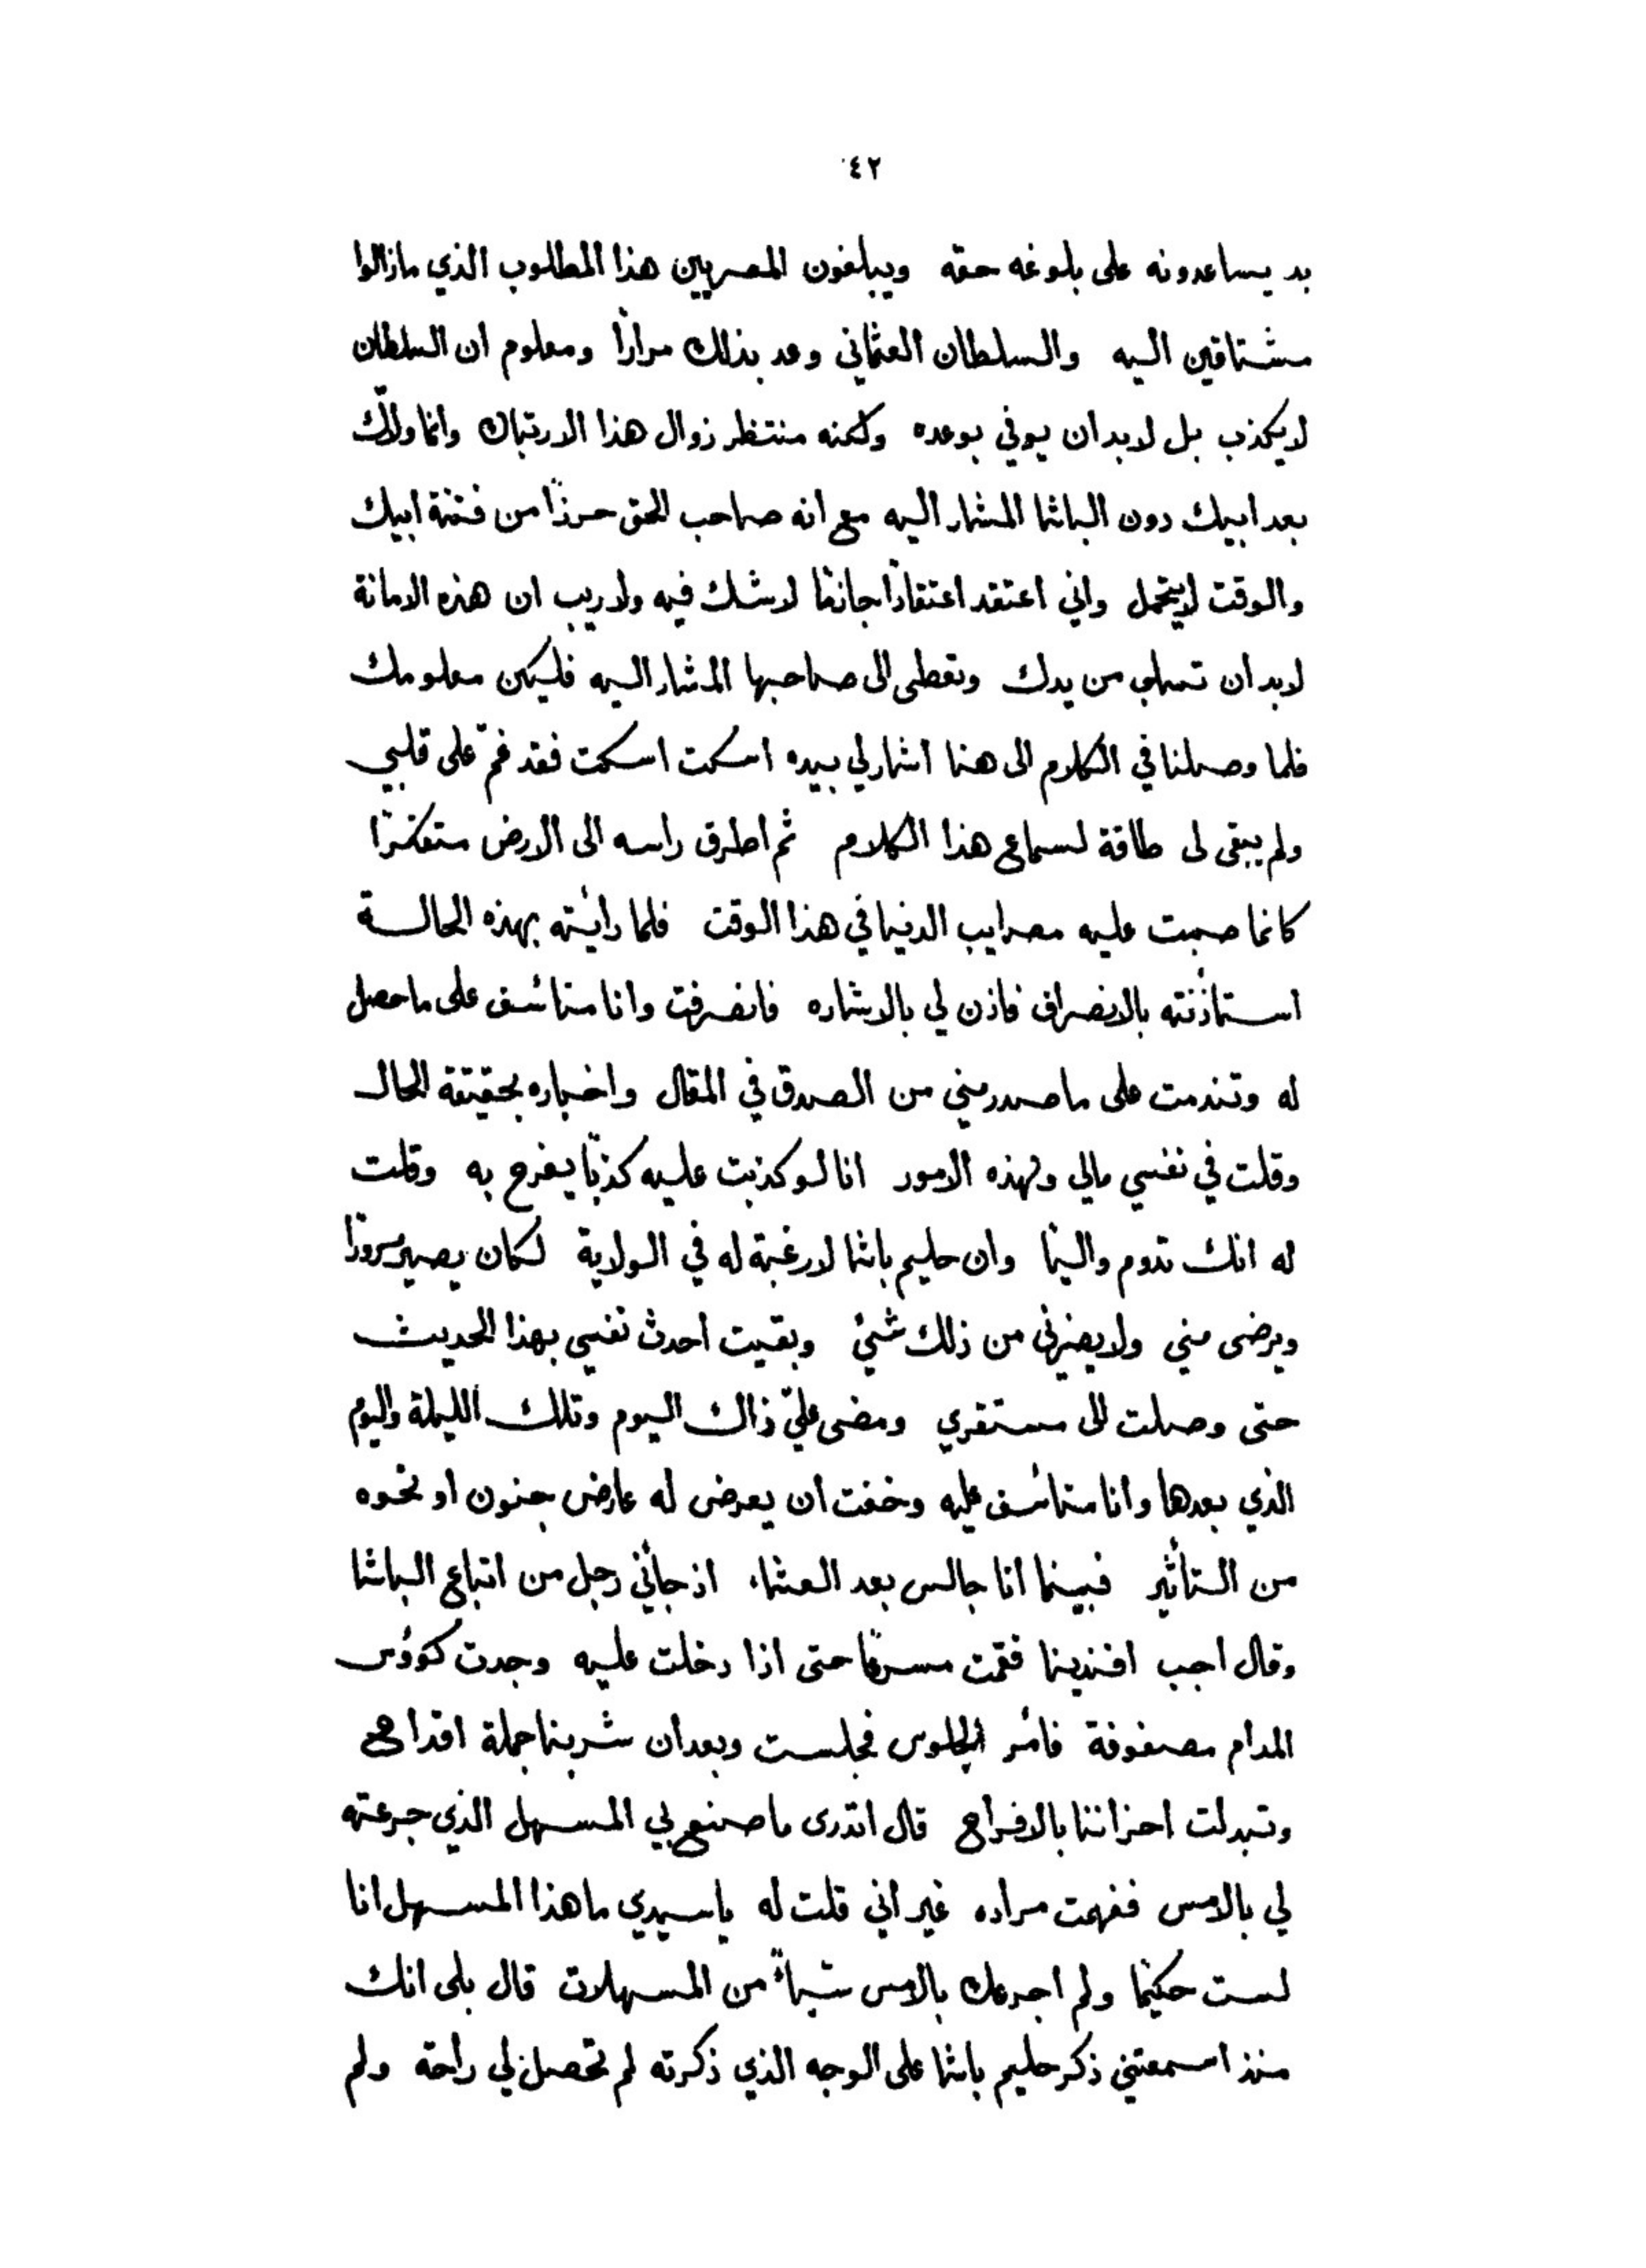 ٤٢
بد يساعدونه على بلوغه حقه ويبلغون المصريين هذا المطلوب الذي مازالوا
مشتاقين اليه والسلطان العثماني وعد بذلك مرارًا ومعلوم ان السلطان
لايكذب بل لابد ان يوفي بوعده ولكنه منتظر زوال هذا الارتباك وانما ولاّك
بعد ابيك دون الباشا المشار اليه مع انه صاحب الحق حرزًا من فتنة ابيك
والوقت لايتحمل واني اعتقد اعتقادًا جازمًا لاشك فيه ولاريب ان هذه الامانة
لابد ان تسلب من يدك وتعطى الى صاحبها المشار اليه فليكن معلومك
فلما وصلنا في الكلام الى هنا اشار لي بيده اسكت اسكت فقد غمّ على قلبي
ولم يبقى لى طاقة لسماع هذا الكلام ثم اطرق راسه الى الارض متفكرًا
كانما صبت عليه مصايب الدنيا في هذا الوقت فلما رأيته بهذه الحالة
استأذنته بالانصراف فاذن لي بالاشاره فانصرفت وانا متأسف على ماحصل
له وتندمت على ماصدر مني من الصدق في المقال واخباره بحقيقة الحال
وقلت في نفسي مالي ولهذه الامور انا لو كذبت عليه كذبًا يفرح به وقلت
له انك تدوم واليًا وان حليم باشا لارغبة له في الولاية لكان يصير مسرورًا
ويرضى مني ولايضرنى من ذلك شيئ وبقيت احدث نفسي بهذا الحديث
حتى وصلت الى مستقري ومضى عليّ ذاك اليوم وتلك الليلة واليوم
الذي بعدها وانا متأسف عليه وخفت ان يعرض له عارض جنون او نحوه
من التأثير فبينما انا جالس بعد العشاء اذ جأني رجل من اتباع الباشا
وقال اجب افندينا فقمت مسرعًا حتى اذا دخلت عليه وجدت كوؤس
المدام مصفوفة فأمر بالجلوس فجلست وبعد ان شربنا جملة اقداح
وتبدلت احزاننا بالافراح قال اتدرى ماصنع بي المسهل الذي جرعته
لي بالامس ففهمت مراده غير اني قلت له ياسيدي ماهذا المسهل انا
لست حكيمًا ولم اجرعك بالامس شيأً من المسهلات قال بلى انك
منذ اسمعتني ذكر حليم باشا على الوجه الذي ذكرته لم تحصل لي راحة ولم